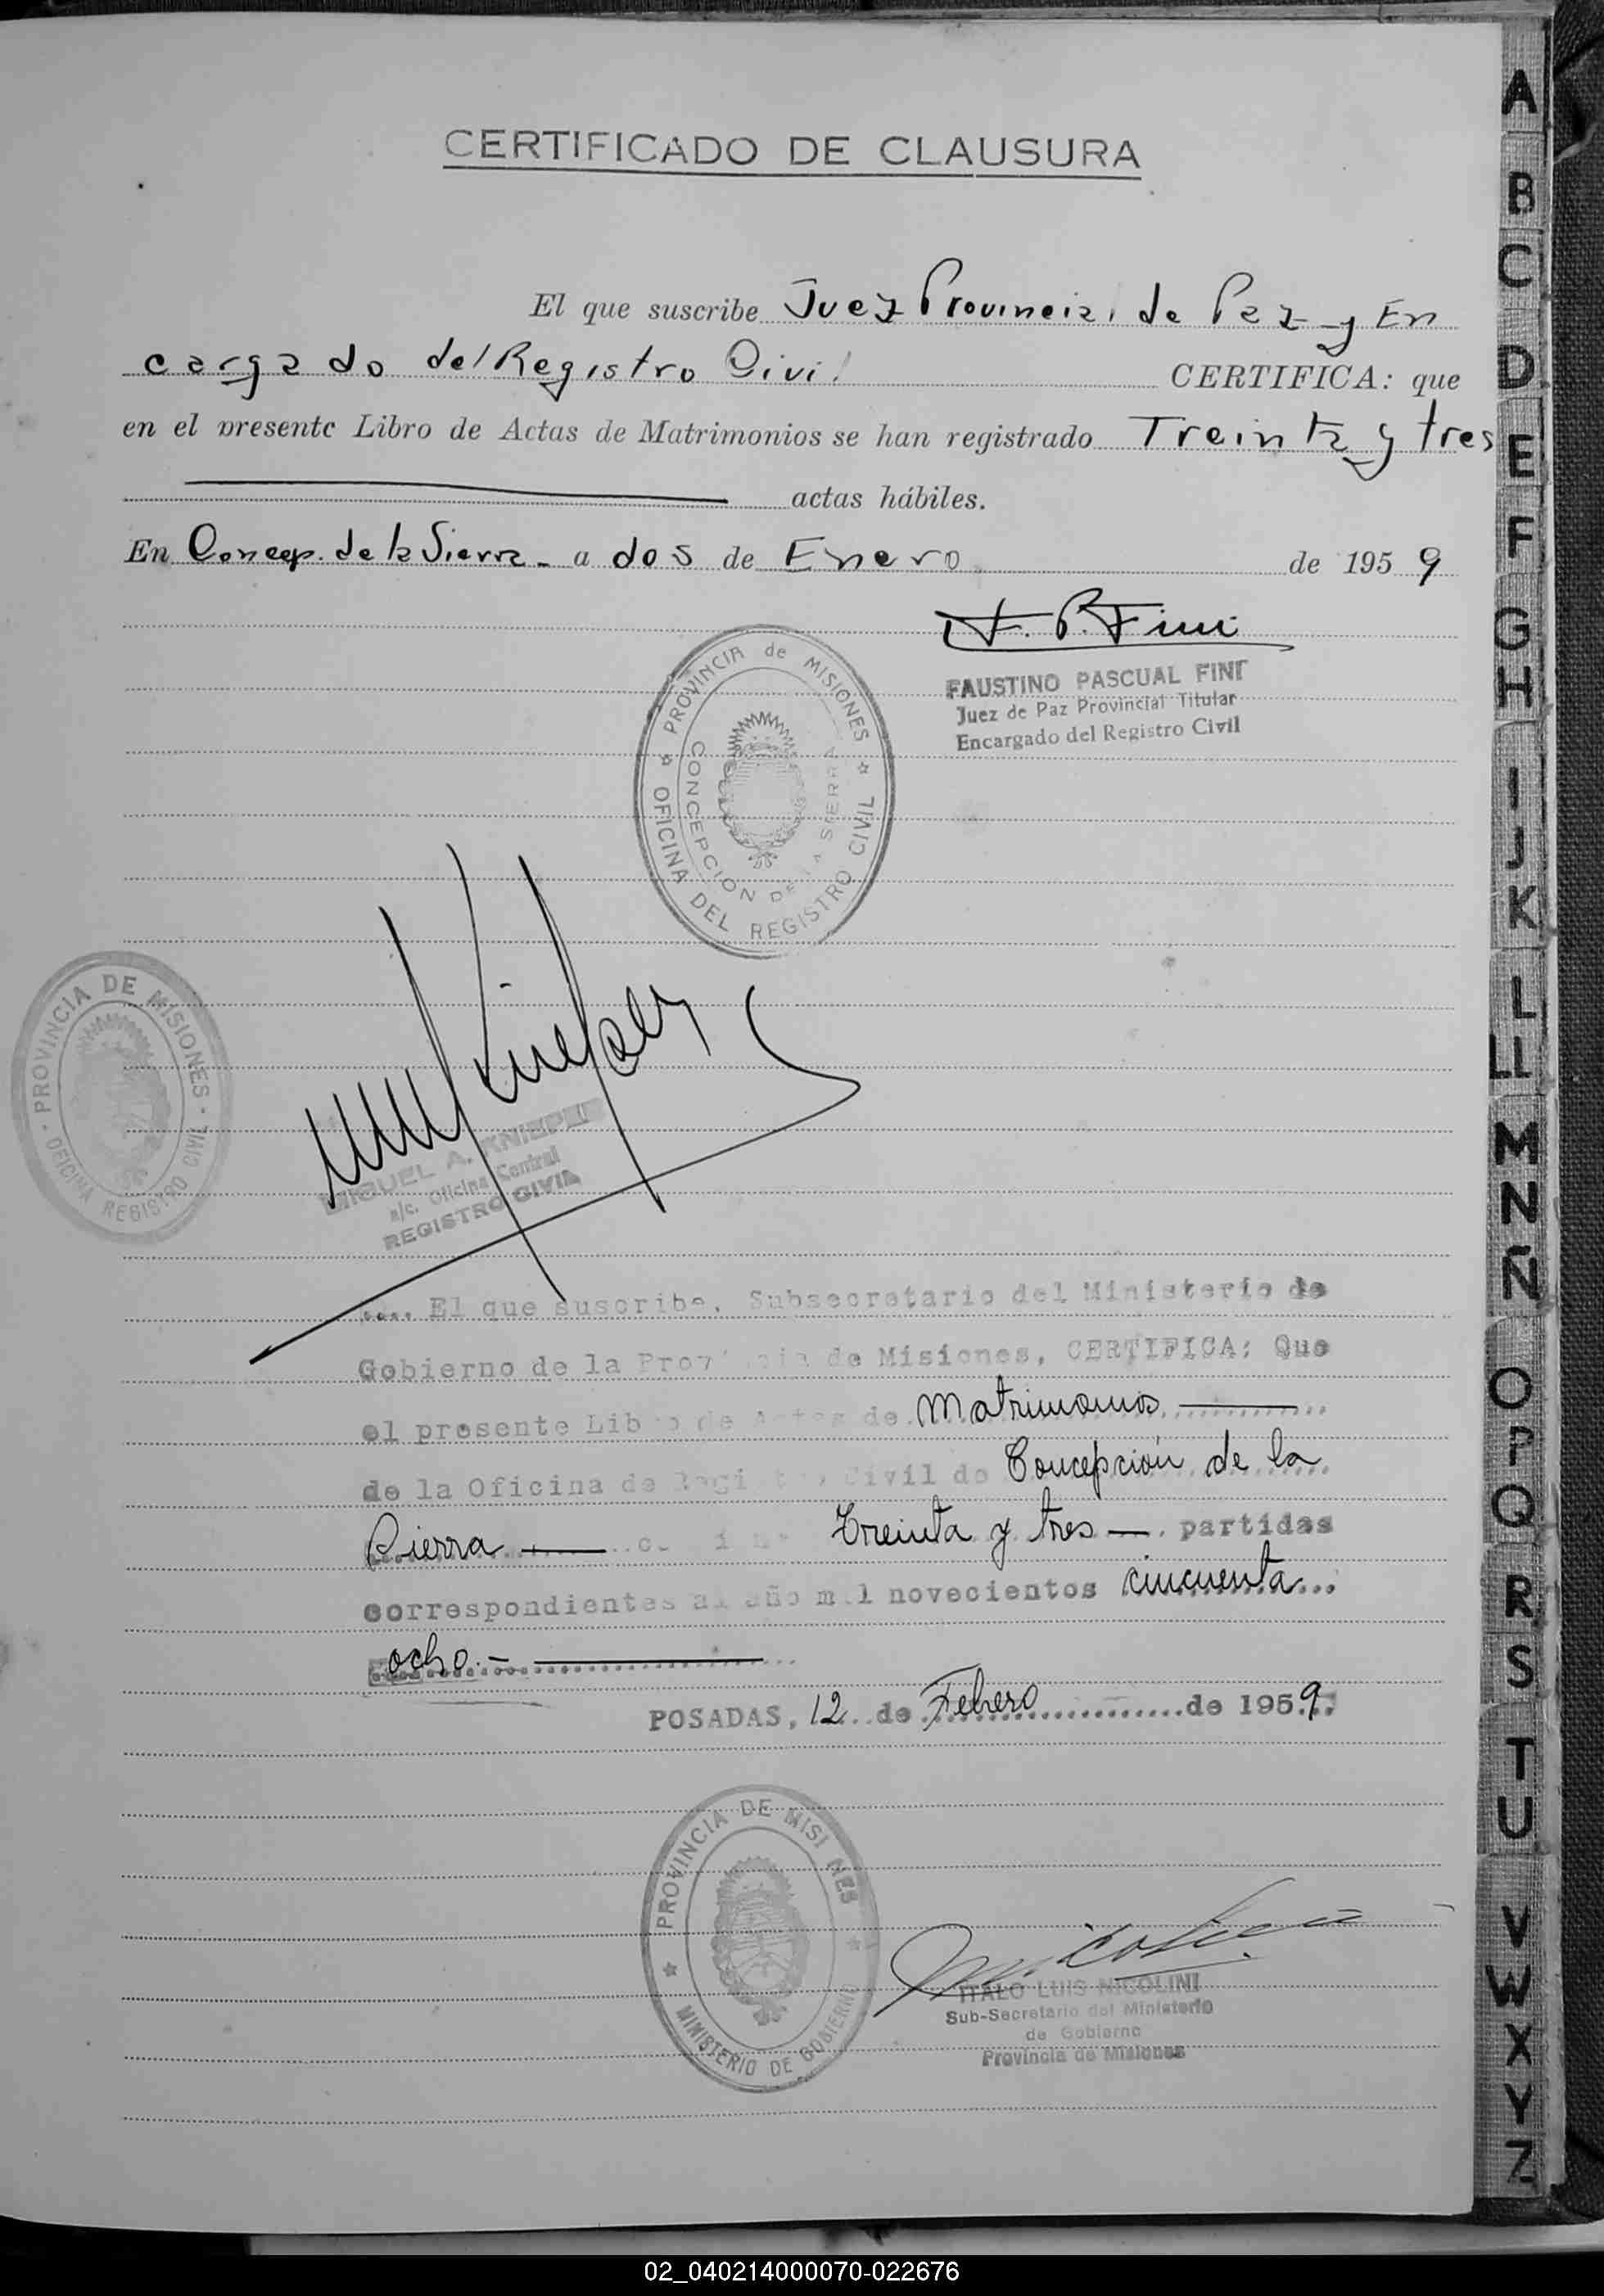 CERTIFICADO DE CLAUSURA
El que suscribe Juez Provincial de Paz y En
cargado del Registro Civil CERTIFICA: que
en el presente Libro de Actas de Matrimonios se han registrado Treinta y tres
actas hábiles.
En Concep. de la Sierra - a dos de Enero de 1959
F. P. Fini
FAUSTINO PASCUAL FINI
Juez de Paz Provincial Titular
Encargado del Registro Civil
PROVINCIA de MISIONES
OFICINA DEL REGISTRO CIVIL
CONCEPCION DE LA SIERRA
PROVINCIA DE MISIONES
OFICINA REGISTRO CIVIL
MIGUEL A. KNIEPER
a/c. Oficina Central
REGISTRO CIVIL
.... El que suscribe, Subsecretario del Ministerio de
Gobierno de la Provincia de Misiones, CERTIFICA: Que
el presente Libro de Actas de Matrimonios
de la Oficina de Registro Civil de Concepción de la
Sierra Treinta y tres — partidas
correspondientes al año mil novecientos cincuenta
ocho.-
POSADAS, 12 de Febrero de 1959.
PROVINCIA DE MISIONES
MINISTERIO DE GOBIERNO
ITALO LUIS NICOLINI
Sub-Secretario del Ministerio
de Gobierno
Provincia de Misiones
A
B
C
D
E
F
G
H
I
J
K
L
Ll
M
N
Ñ
O
P
Q
R
S
T
U
V
W
X
Y
Z
02_040214000070-022676